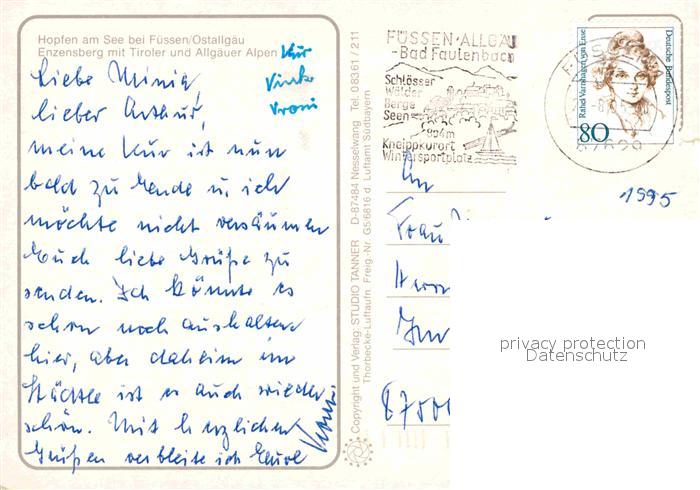 Hopfen am See bei Füssen/Ostallgäu
Enzensberg mit Tiroler und Allgäuer Alpen
Kur
Vroni
Liebe Minia,
lieber Arthur,
meine Kur ist nun
bald zu Ende u. ich
möchte nicht versäumen
Euch liebe Grüße zu
senden. Ich könnte es
schon noch aushalten
hier, aber daheim im
Städtle ist es auch wieder
schön. Mit herzlichen
Grüßen verbleibe ich Eure
Vroni
Copyright und Verlag: STUDIO TANNER D-87484 Nesselwang Tel. 0 83 61 / 2 11
Thorbecke-Luftaufn Freig.-Nr. G5/6616 d. Luftamt Südbayern
FÜSSEN · ALLGÄU
-Bad Faulenbach
Schlösser
Wälder
Berge
Seen
804m
Kneippkurort
Wintersportplatz
Rahel Varnhagen von Ense
Deutsche Bundespost
80
87629
1995
An
Frau
privacy protection
Datenschutz